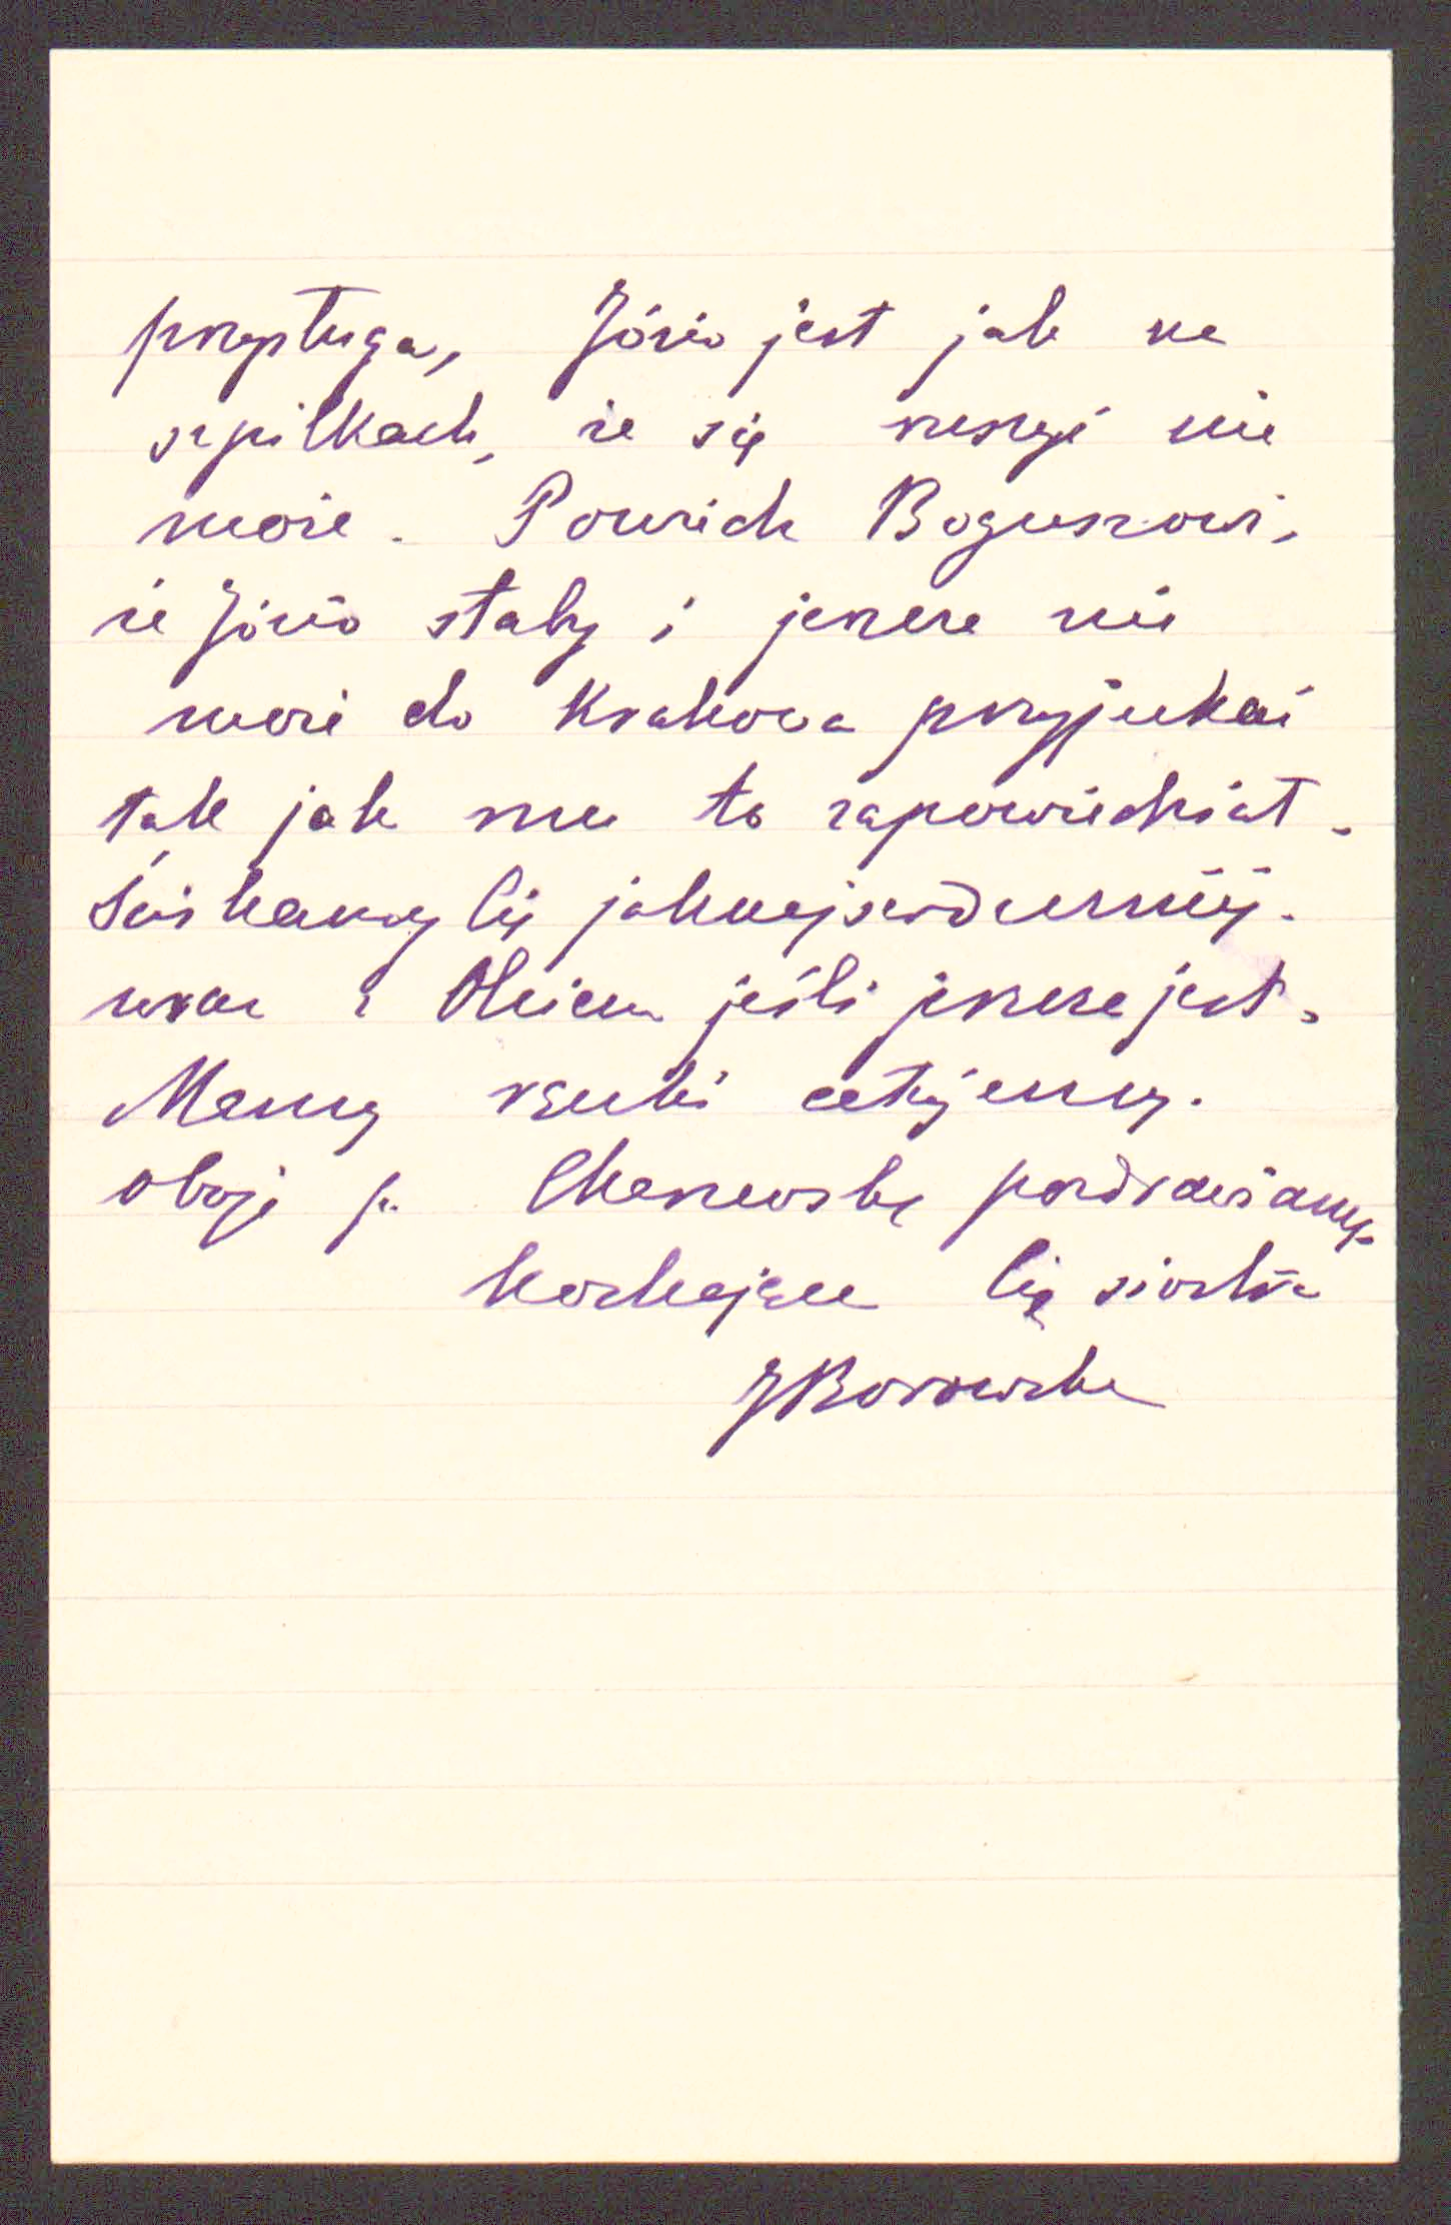 przysługa, Józio jest jak na
szpilkach, że się ruszyć nie
może. Powiedz Boguszowi,
że Józio słaby i jeszcze nie
może do Krakowa przyjechać
tak jak mu to zapowiedział.
Ściskamy Cię jaknajserdeczniej.
wraz z Olsiem jeśli jeszcze jest.
Mamy rączki całujemy.
oboje p. pozdrawiamy
kochająca Cię siostra
JBorowska